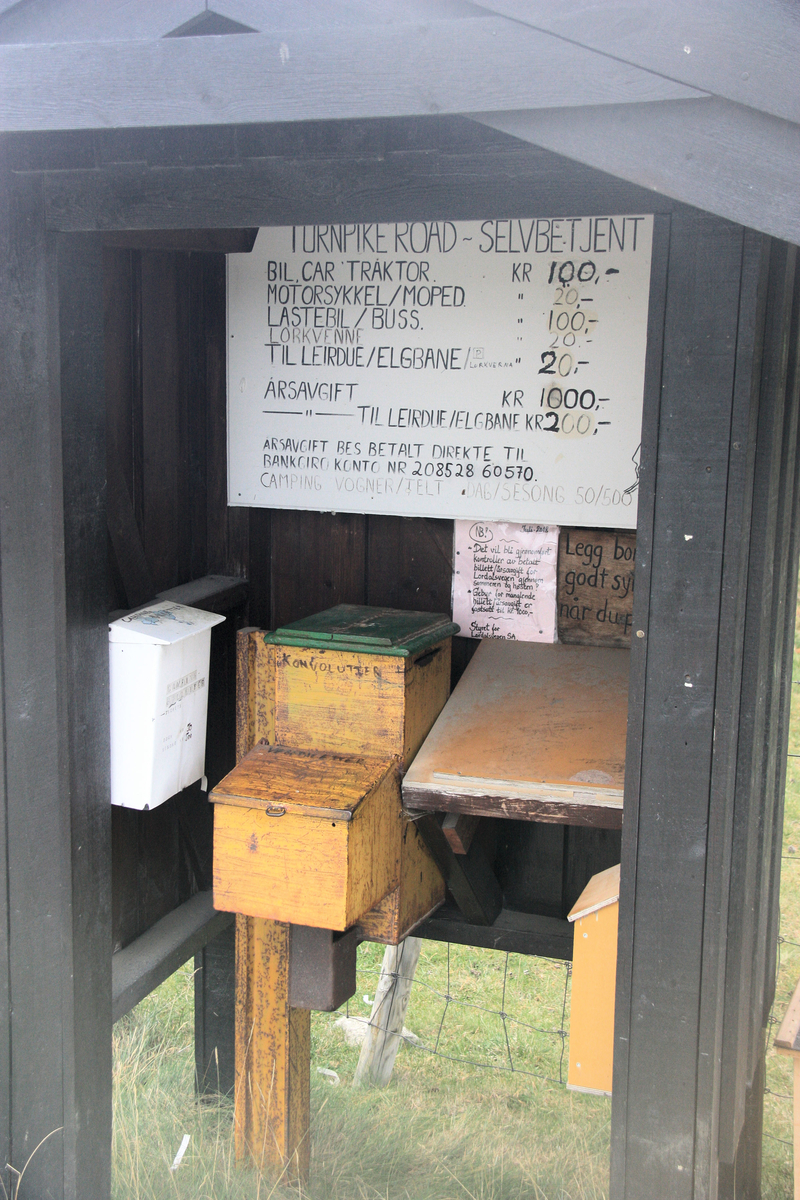 TURNPIKE ROAD ~ SELVBETJENT
BIL, CAR TRAKTOR. KR 100,-
MOTORSYKKEL/MOPED. " 20,-
LASTEBIL/BUSS. " 100,-
LORKVENNE " 20.-
TIL LEIRDUE/ELGBANE/P LORKVERNA " 20,-
ÅRSAVGIFT KR 1000,-
—— " —— TIL LEIRDUE/ELGBANE KR 200,-
ÅRSAVGIFT BES BETALT DIREKTE TIL
BANKGIRO KONTO NR 208528 60570.
CAMPING VOGNER/TELT DAG/SESONG 50/500
NB!
Det vil bli gjennomført
kontroller av betalt
billett/årsavgift for
Lordalsvegen gjennom
sommeren og høsten
Gebyr for manglende
billett/årsavgift er
fastsatt til kr
Styret for
Lordalsvegen SA
Legg
godt
når du
KONVOLUTTER